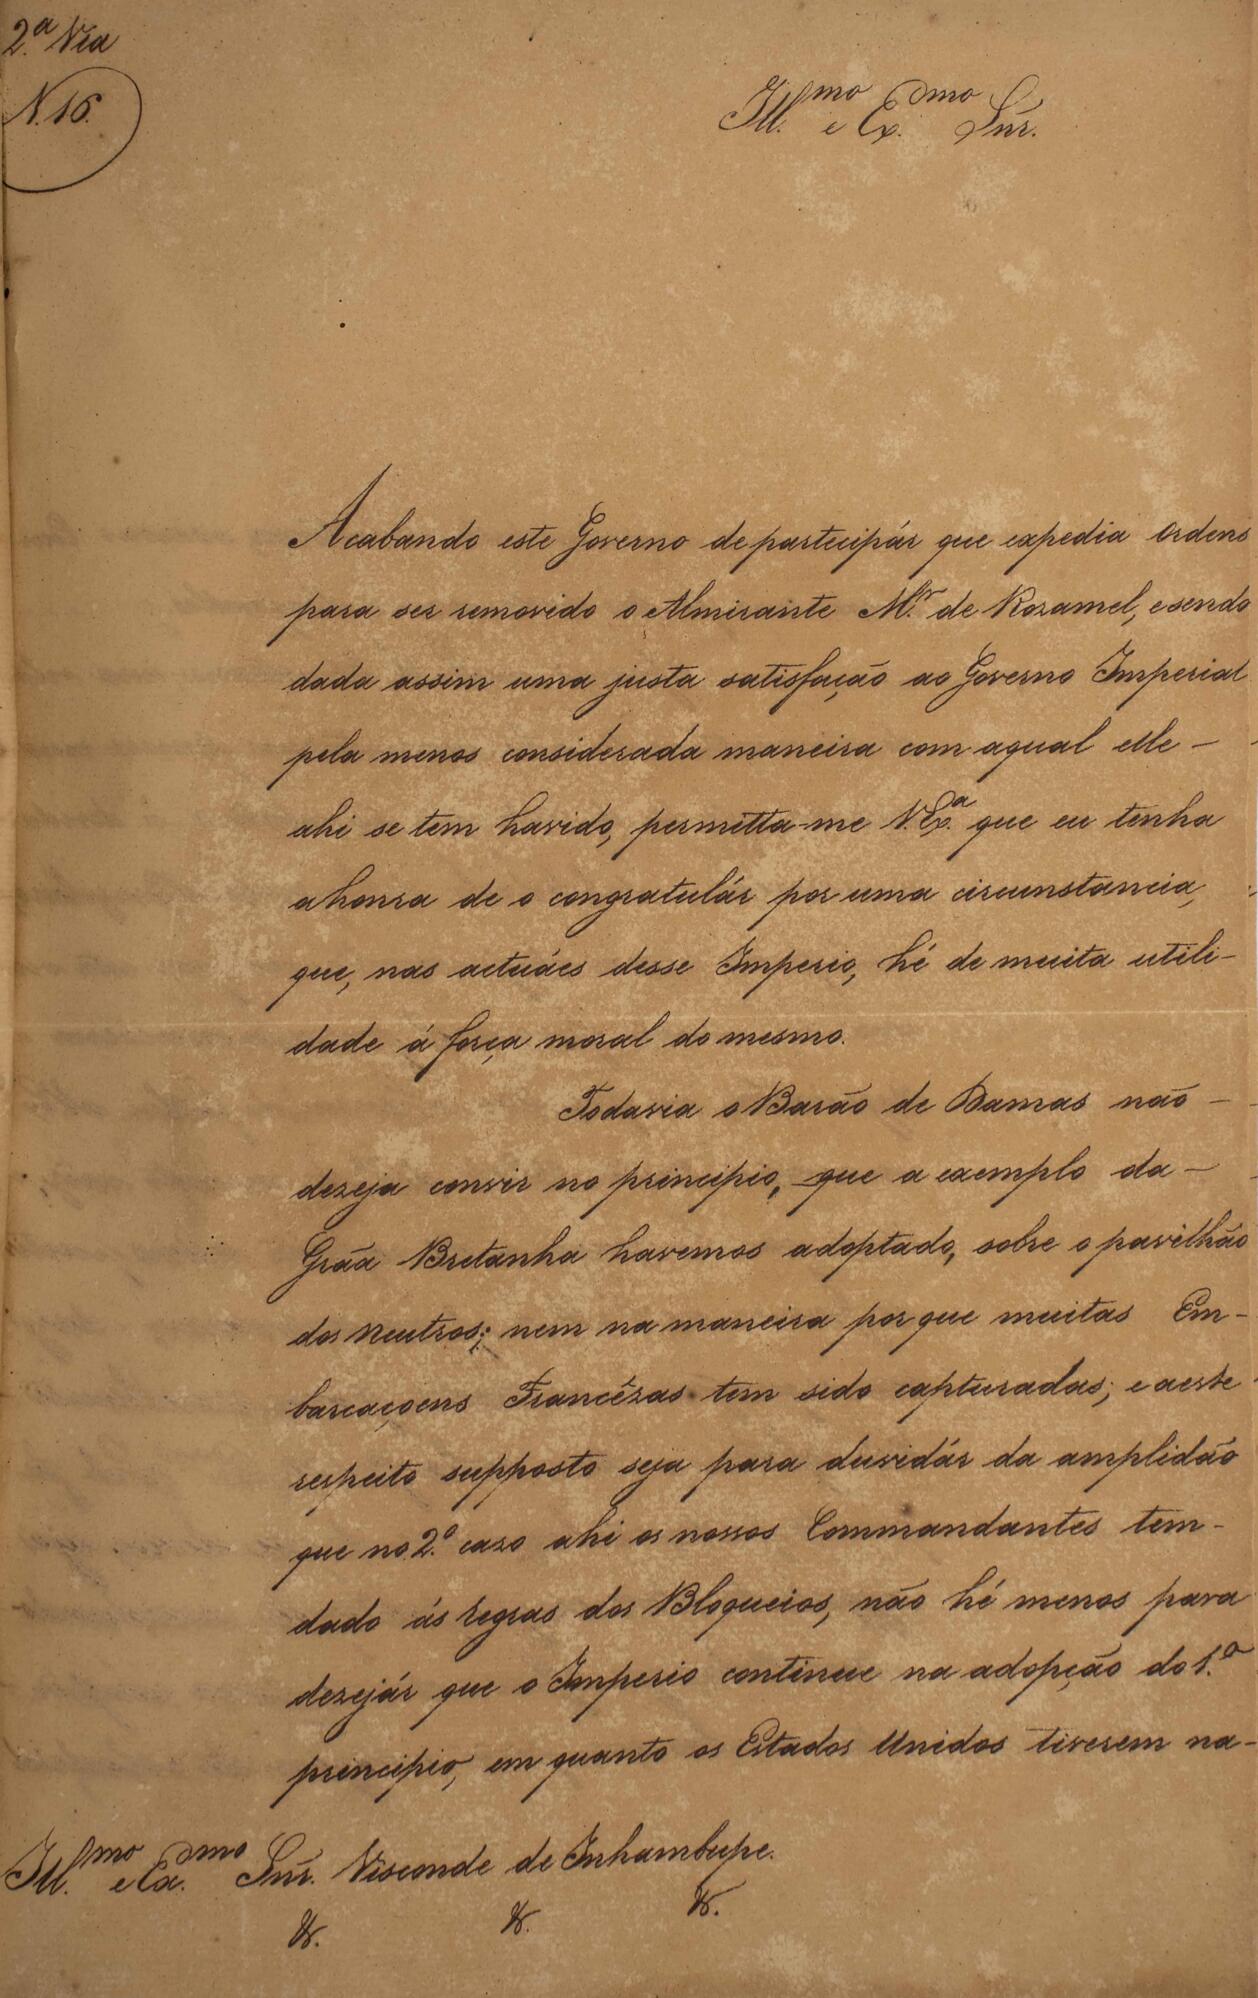 2.ª Via
N. 16.
Ill.mo e Ex.mo Snr.
Acabando este Governo de partecipár que expedia Ordens
para ser removido o Almirante M.r de Rozamel, e sendo
dada assim uma justa satisfação ao Governo Imperial
pela menos considerada maneira com aqual elle -
ahi se tem havido, permitta-me V. Ex.ª que eu tenha
a honra de o congratulár por uma circunstancia,
que, nas actuáes desse Imperio, hé de muita utili-
dade á força moral do mesmo.
Todavia o Barão de Damas não -
dezeja convir no principio, que a exemplo da -
Grãa Bretanha havemos adoptado, sobre o pavilhão
dos Neutros; nem na maneira por que muitas Em-
barcaçoens Francêzas tem sido capturadas; e aeste
respeito supposto seja para duvidár da amplidão
que no 2.º cazo ahi os nossos Commandantes tem-
dado ás regras dos Bloqueios, não hé menos para
dezejár que o Imperio continue na adopção do 1.º
principio, em quanto os Estados Unidos tiverem na-
Ill.mo e Ex.mo Snr. Visconde de Inhambupe.
&. &. &.